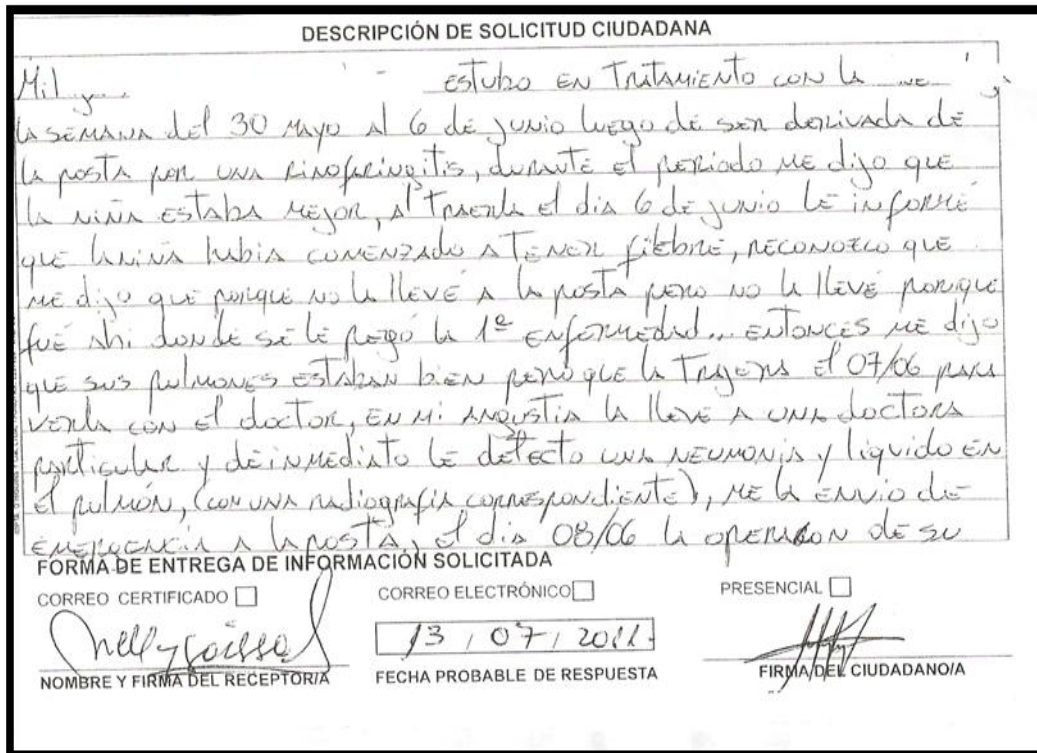 DESCRIPCIÓN DE SOLICITUD CIUDADANA
Mil estubo en tratamiento con la
la semana del 30 mayo al 6 de junio luego de ser derivada de
la posta por una rinofaringitis, durante el periodo me dijo que
la niña estaba mejor, al traerla el dia 6 de junio le informé
que la niña habia comenzado a tener fiebre, reconozco que
me dijo que porque no la llevé a la posta pero no la llevé porque
fué ahi donde se le pegó la 1ª enfermedad... entonces me dijo
que sus pulmones estaban bien pero que la trajera el 07/06 para
verla con el doctor, en mi angustia la lleve a una doctora
particular y de inmediato le detecto una neumonia y liquido en
el pulmón, (con una radiografia correspondiente), me la envio de
emergencia a la posta, el dia 08/06 la operaron de su
FORMA DE ENTREGA DE INFORMACIÓN SOLICITADA
CORREO CERTIFICADO CORREO ELECTRÓNICO PRESENCIAL
Nelly
13 / 07 / 2011.
NOMBRE Y FIRMA DEL RECEPTOR/A FECHA PROBABLE DE RESPUESTA FIRMA DEL CIUDADANO/A